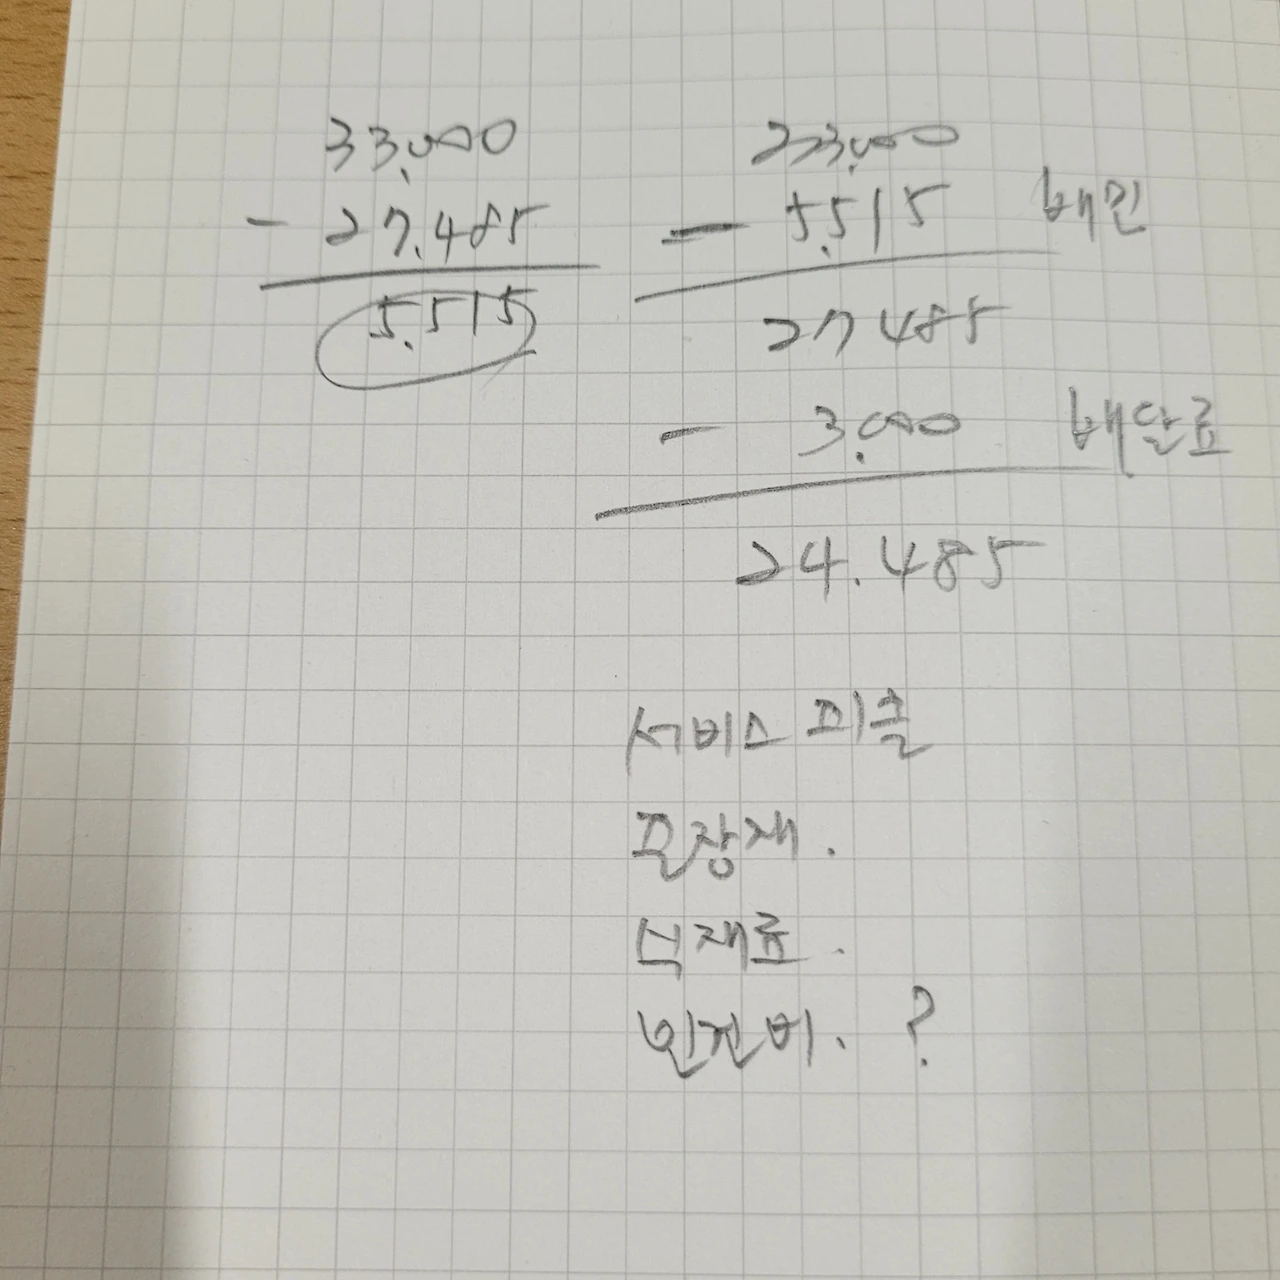 33,000
- 27.485
5.515
33,000
- 5.515 배민
27485
- 3.000 배달료
24.485
서비스 피클
포장재.
식재료.
인건비. ?